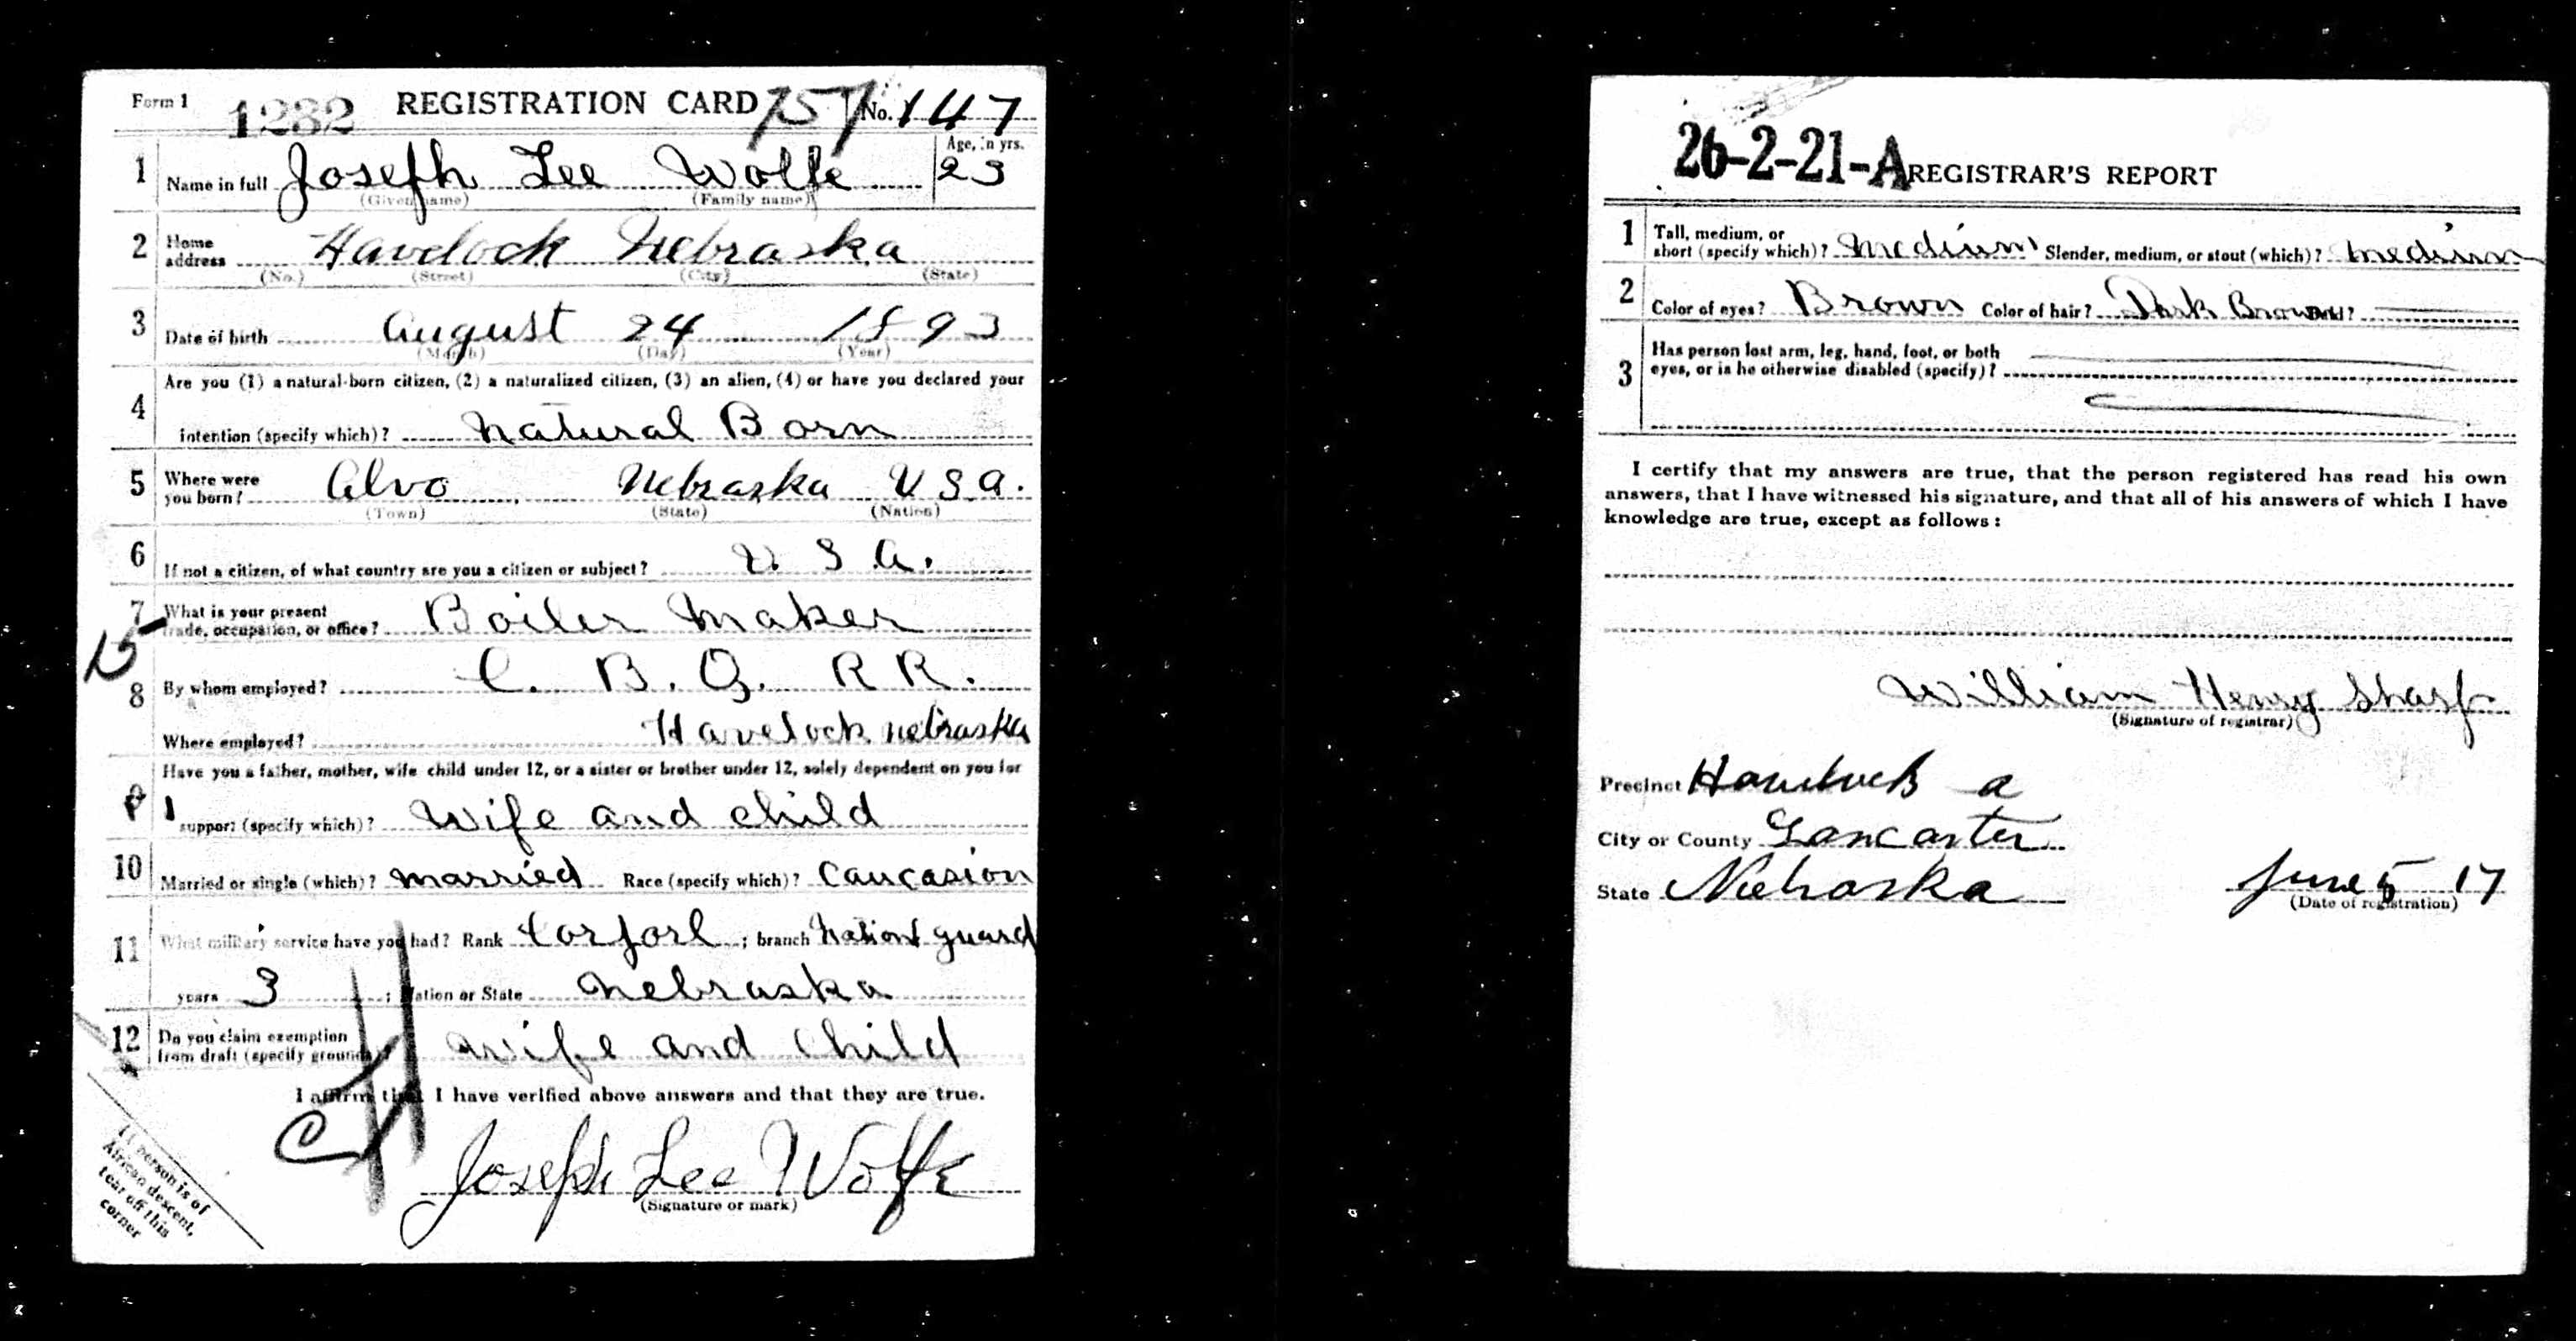 Form 1 1232 REGISTRATION CARD 757 No. 147
1 Name in full Joseph Lee Wolfe Age, in yrs. 23
(Given name) (Family name)
2 Home address Havelock Nebraska
(No.) (Street) (City) (State)
3 Date of birth August 24 1893
(Month) (Day) (Year)
Are you (1) a natural-born citizen, (2) a naturalized citizen, (3) an alien, (4) or have you declared your
4 intention (specify which)? Natural Born
5 Where were you born? Alvo Nebraska U S a.
(Town) (State) (Nation)
6 If not a citizen, of what country are you a citizen or subject? U. S. A.
7 What is your present trade, occupation, or office? Boiler Maker
15
8 By whom employed? C. B. Q. RR.
Where employed? Havelock Nebraska
Have you a father, mother, wife child under 12, or a sister or brother under 12, solely dependent on you for
9 support (specify which)? Wife and child
10 Married or single (which)? married Race (specify which)? Caucasion
11 What military service have you had? Rank Corporl ; branch Nationl guard
years 3 ; Nation or State Nebraska
12 Do you claim exemption
from draft (specify grounds)? Wife and Child
I affirm that I have verified above answers and that they are true.
Joseph Lee Wolfe
(Signature or mark)
If person is of
African descent,
tear off this
corner
26-2-21-A REGISTRAR'S REPORT
1 Tall, medium, or
short (specify which)? Medium Slender, medium, or stout (which)? Medium
2 Color of eyes? Brown Color of hair? Dark Brown Bald?
3 Has person lost arm, leg, hand, foot, or both
eyes, or is he otherwise disabled (specify)?
I certify that my answers are true, that the person registered has read his own
answers, that I have witnessed his signature, and that all of his answers of which I have
knowledge are true, except as follows:
William Henry Sharp
(Signature of registrar)
Precinct Havelock a
City or County Lancaster
State Nebraska June 5 17
(Date of registration)